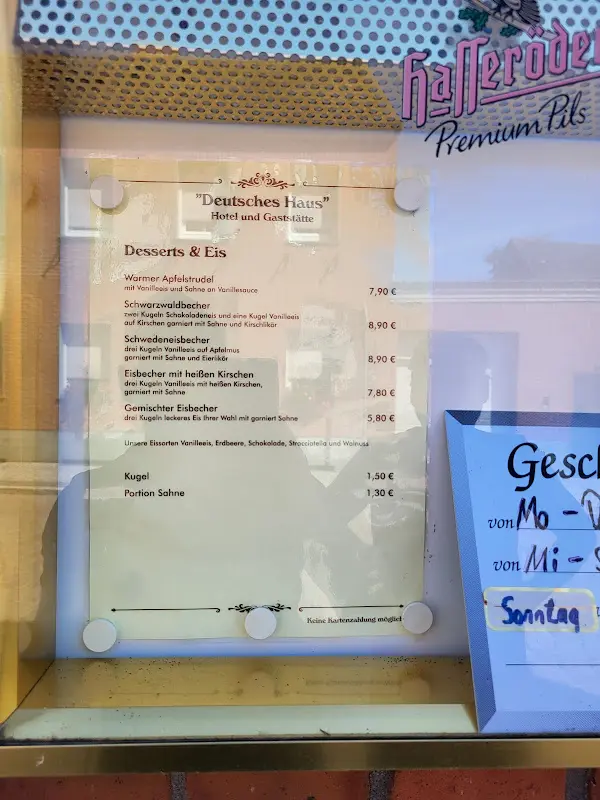 Hasseröder
Premium Pils
"Deutsches Haus"
Hotel und Gaststätte
Desserts & Eis
Warmer Apfelstrudel
mit Vanilleeis und Sahne an Vanillesauce 7,90 €
Schwarzwaldbecher
zwei Kugeln Schokoladeneis und eine Kugel Vanilleeis
auf Kirschen garniert mit Sahne und Kirschlikör 8,90 €
Schwedeneisbecher
drei Kugeln Vanilleeis auf Apfelmus
garniert mit Sahne und Eierlikör 8,90 €
Eisbecher mit heißen Kirschen
drei Kugeln Vanilleeis mit heißen Kirschen,
garniert mit Sahne 7,80 €
Gemischter Eisbecher
drei Kugeln leckeres Eis Ihrer Wahl mit garniert Sahne 5,80 €
Unsere Eissorten Vanilleeis, Erdbeere, Schokolade, Stracciatella und Walnuss
Kugel 1,50 €
Portion Sahne 1,30 €
Keine Kartenzahlung möglich
Gesch
von Mo - D
von Mi - S
Sonntag